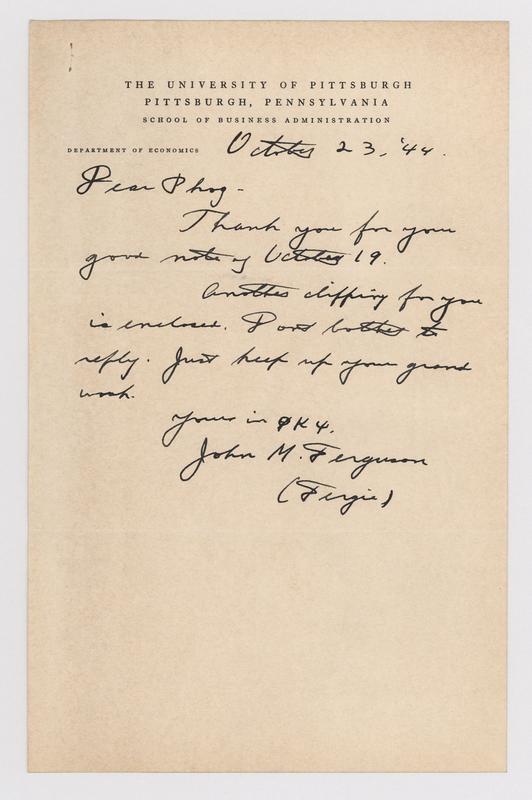 THE UNIVERSITY OF PITTSBURGH
PITTSBURGH, PENNSYLVANIA
SCHOOL OF BUSINESS ADMINISTRATION
DEPARTMENT OF ECONOMICS October 23, '44.
Dear Phog -
Thank you for your
good note of October 19.
Another clipping for you
is enclosed. Dont bother to
reply. Just keep up your grand
work.
Yours in ΦΚΨ.
John M. Ferguson
(Fergie)